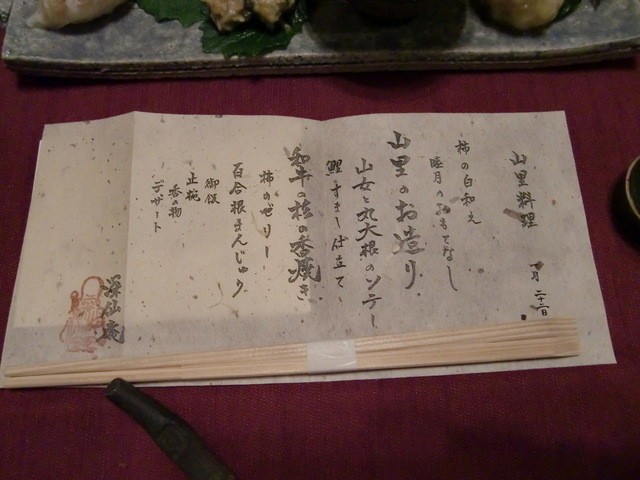 山里料理
一月 二十二日
柿の白和え
睦月のおもてなし
山里のお造り
山女と丸大根のソテー
鯉すきー仕立て、
和牛の杉の香焼き
柿のゼリー
百合根まんじゅう
御飯
止椀
香の物
デザート